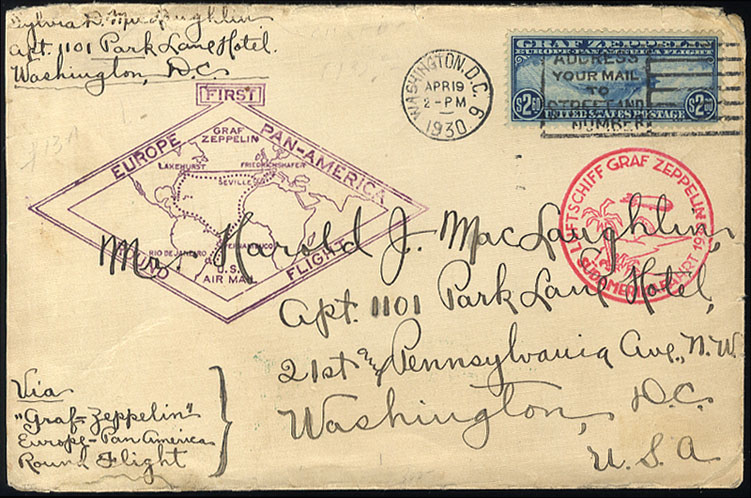 Sylvia D. MacLaughlin
Apt. 1101 Park Lane Hotel.
Washington, D.C.
WASHINGTON, D.C. 6
APR 19
2-PM
1930
ADDRESS
YOUR MAIL
TO
STREET AND
NUMBER
GRAF ZEPPELIN
$2.60 $2.60
UNITED STATES POSTAGE
FIRST
EUROPE PAN-AMERICA
ROUND FLIGHT
GRAF
ZEPPELIN
LAKEHURST FRIEDRICHSHAFEN
SEVILLE
RIO DE JANEIRO PERNAMBUCO
U.S.
AIR MAIL
LUFTSCHIFF GRAF ZEPPELIN
SÜDAMERIKAFAHRT
Mr. Harold J. MacLaughlin,
Apt. 1101 Park Lane Hotel,
21st and Pennsylvania Ave., N.W.
Washington, D.C.
U.S.A
Via
"Graf-Zeppelin"
Europe-Pan America
Round Flight